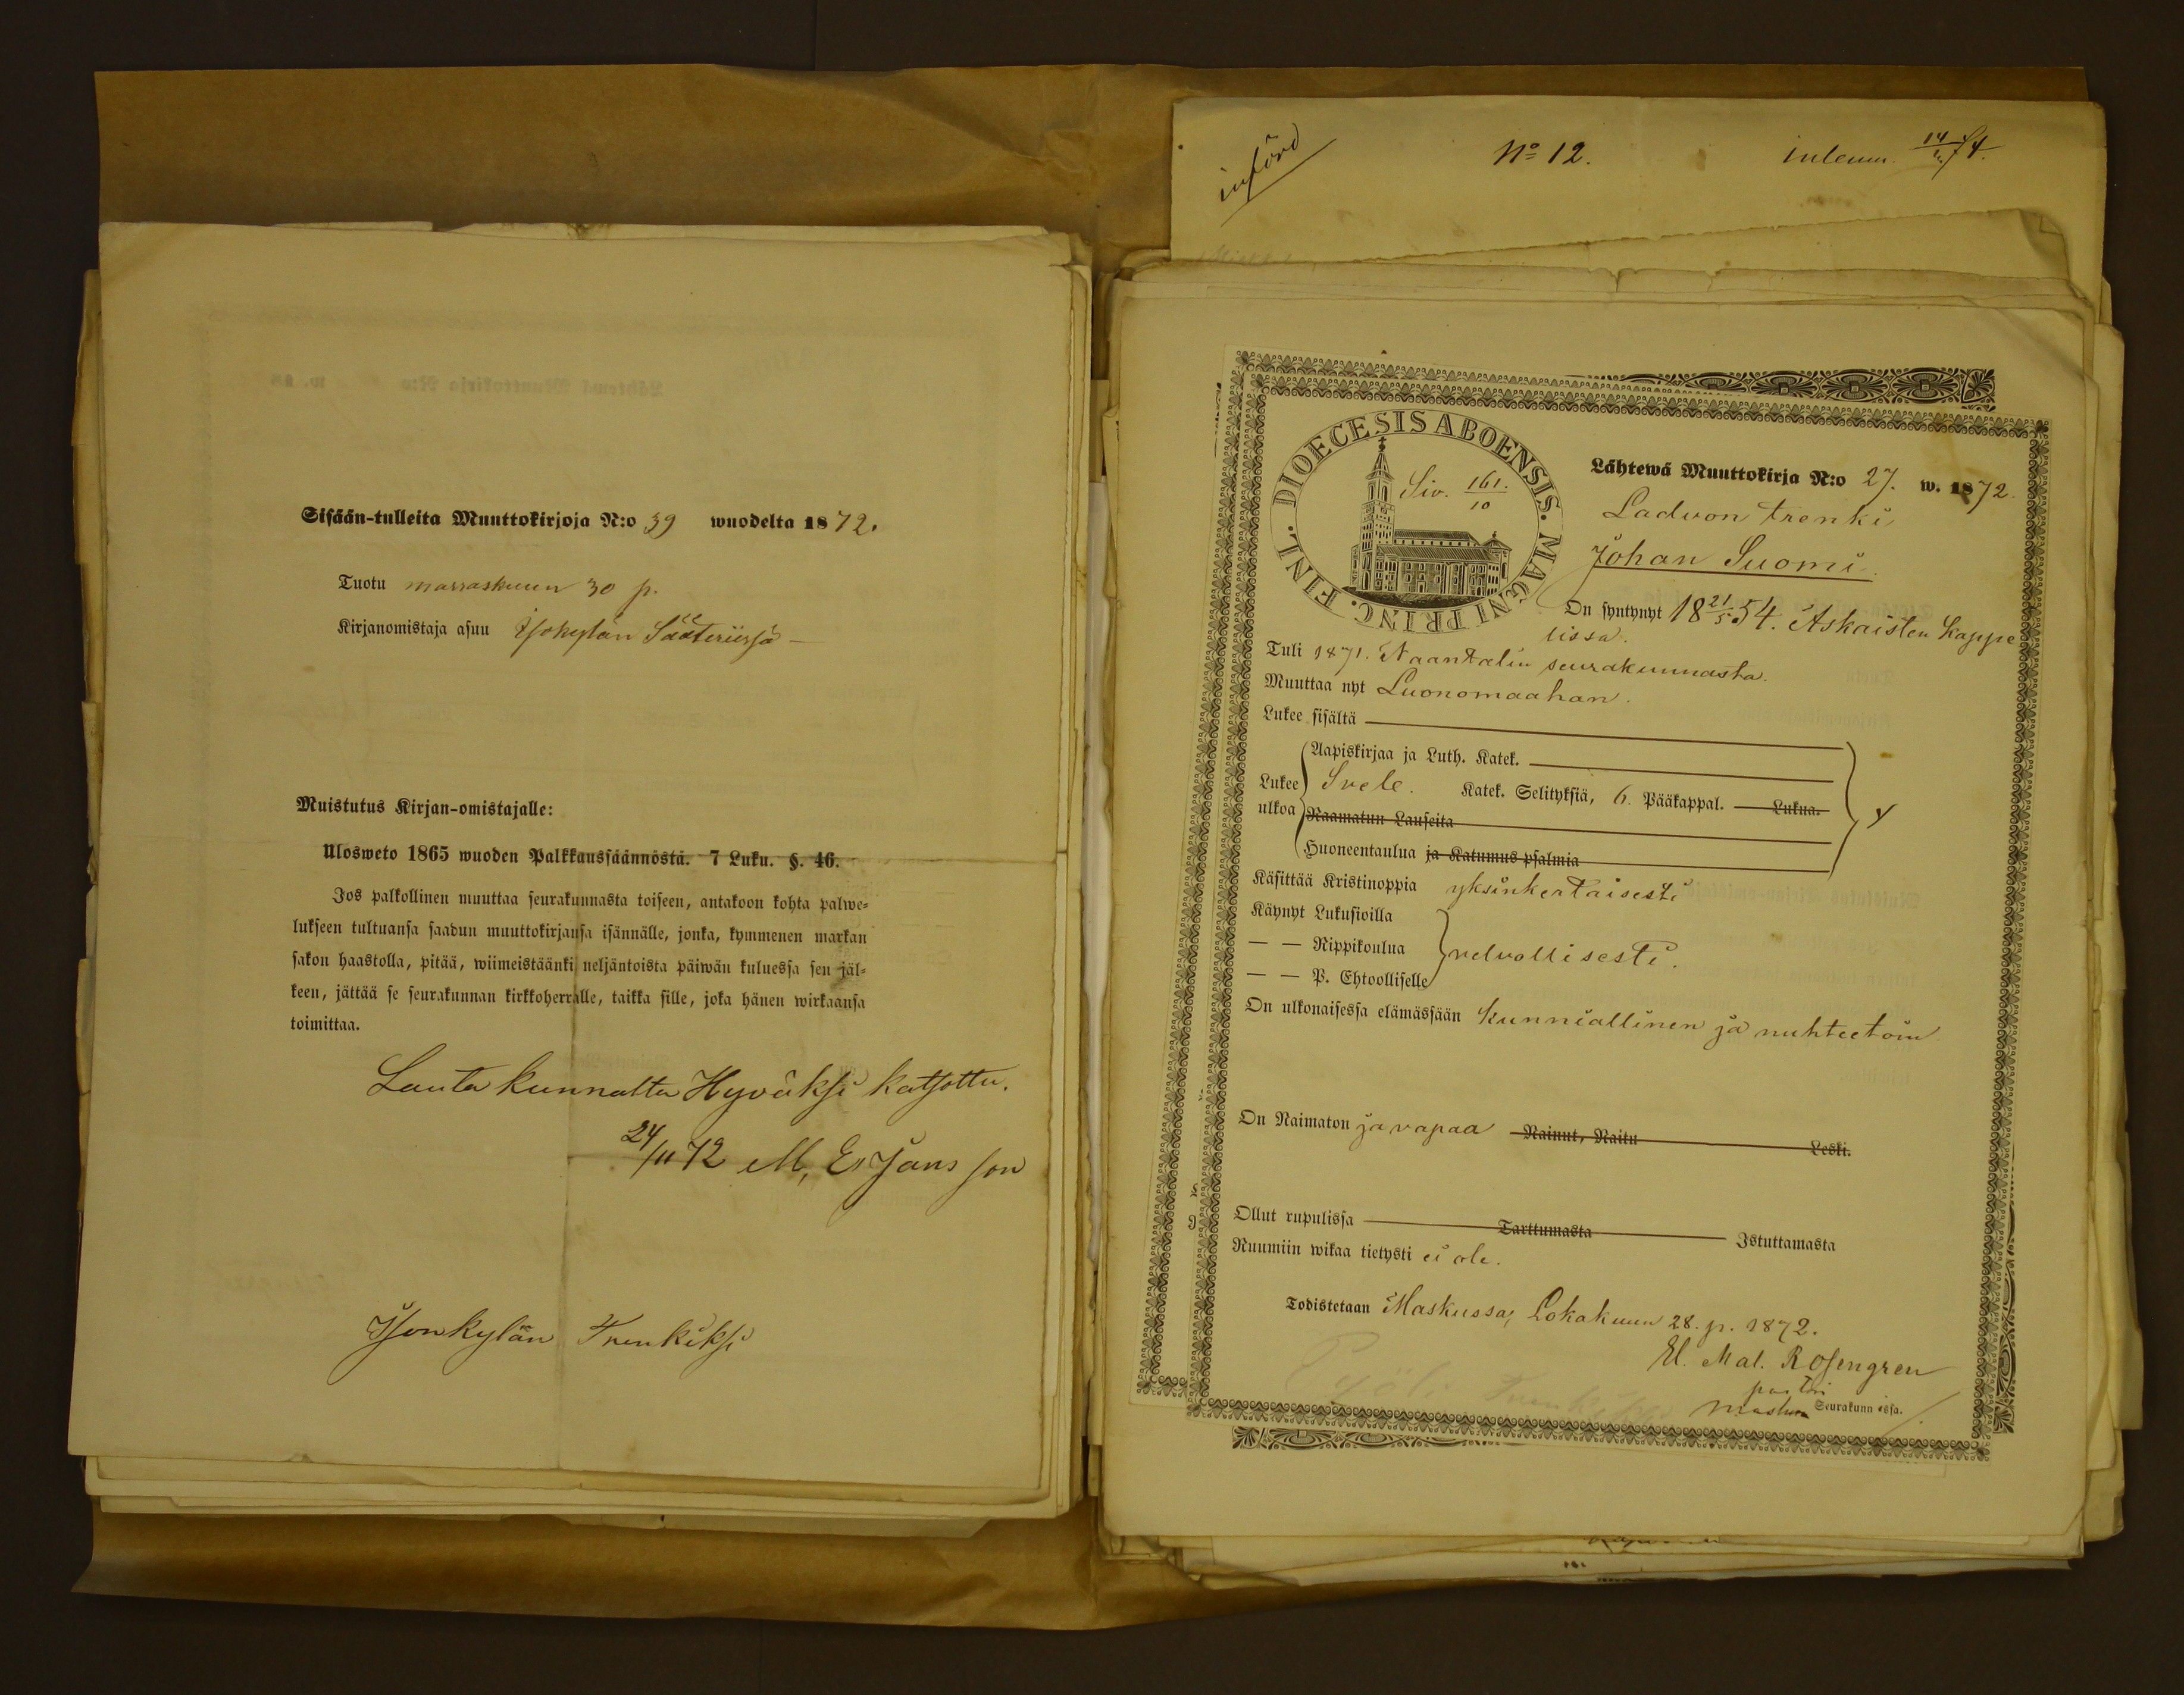 Sisään-tulleita Muuttokirjoja N:o 39 wuodelta 1872.
Tuotu marraskuun 30 p.
Kirjanomistaja asuu Isokylän Sääteriissä –
Muistutus Kirjan-omistajalle:
Ulosweto 1865 wuoden Palkkaussäännöstä. 7 Luku. §. 46.
Jos palkollinen muuttaa seurakunnasta toiseen, antakoon kohta palwe-
lukseen tultuansa saadun muuttokirjansa isännälle, jonka, kymmenen markan
sakon haastolla, pitää, wiimeistäänki neljäntoista päiwän kuluessa sen jäl-
keen, jättää se seurakunnan kirkkoherralle, taikka sille, joka hänen wirkaansa
toimittaa.
Lauta kunnalta Hyväksi katsottu.
24/11 72 M, E, Jans son
Isonkylän Trenkiksi
införd
No 12.
inlemn. 74.
FINL. DIOECESIS ABOENSIS. MAGNI PRINC.
Siv. 161./10
Lähtewä Muuttokirja N:o 27. w. 1872.
Ladvon trenki
Johan Suomi.
On syntynyt 18 21/5 54. Askaisten kappe
lissa.
Tuli 1871. Naantalin seurakunnasta.
Muuttaa nyt Luonomaahan.
Lukee sisältä
Aapiskirjaa ja Luth. Katek.
Lukee ulkoa Svele. Katek. Selityksiä, 6. Pääkappal. Lukua.
Raamatun Lauseita
Huoneentaulua ja Katumus-psalmia
Käsittää Kristinoppia yksinkertaisesti
Käynyt Lukusioilla
— — Rippikoulua velvollisesti.
— — P. Ehtoolliselle
On ulkonaisessa elämässään kunniallinen ja nuhteetoin
On Naimaton ja vapaa Nainut, Naitu Leski.
Ollut rupulissa Tarttumasta Istuttamasta
Ruumiin wikaa tietysti ei ole.
Todistetaan Maskussa, Lokakuun 28. p. 1872.
El. Mal. Rosengren
pastori
Maskun Seurakunnissa.